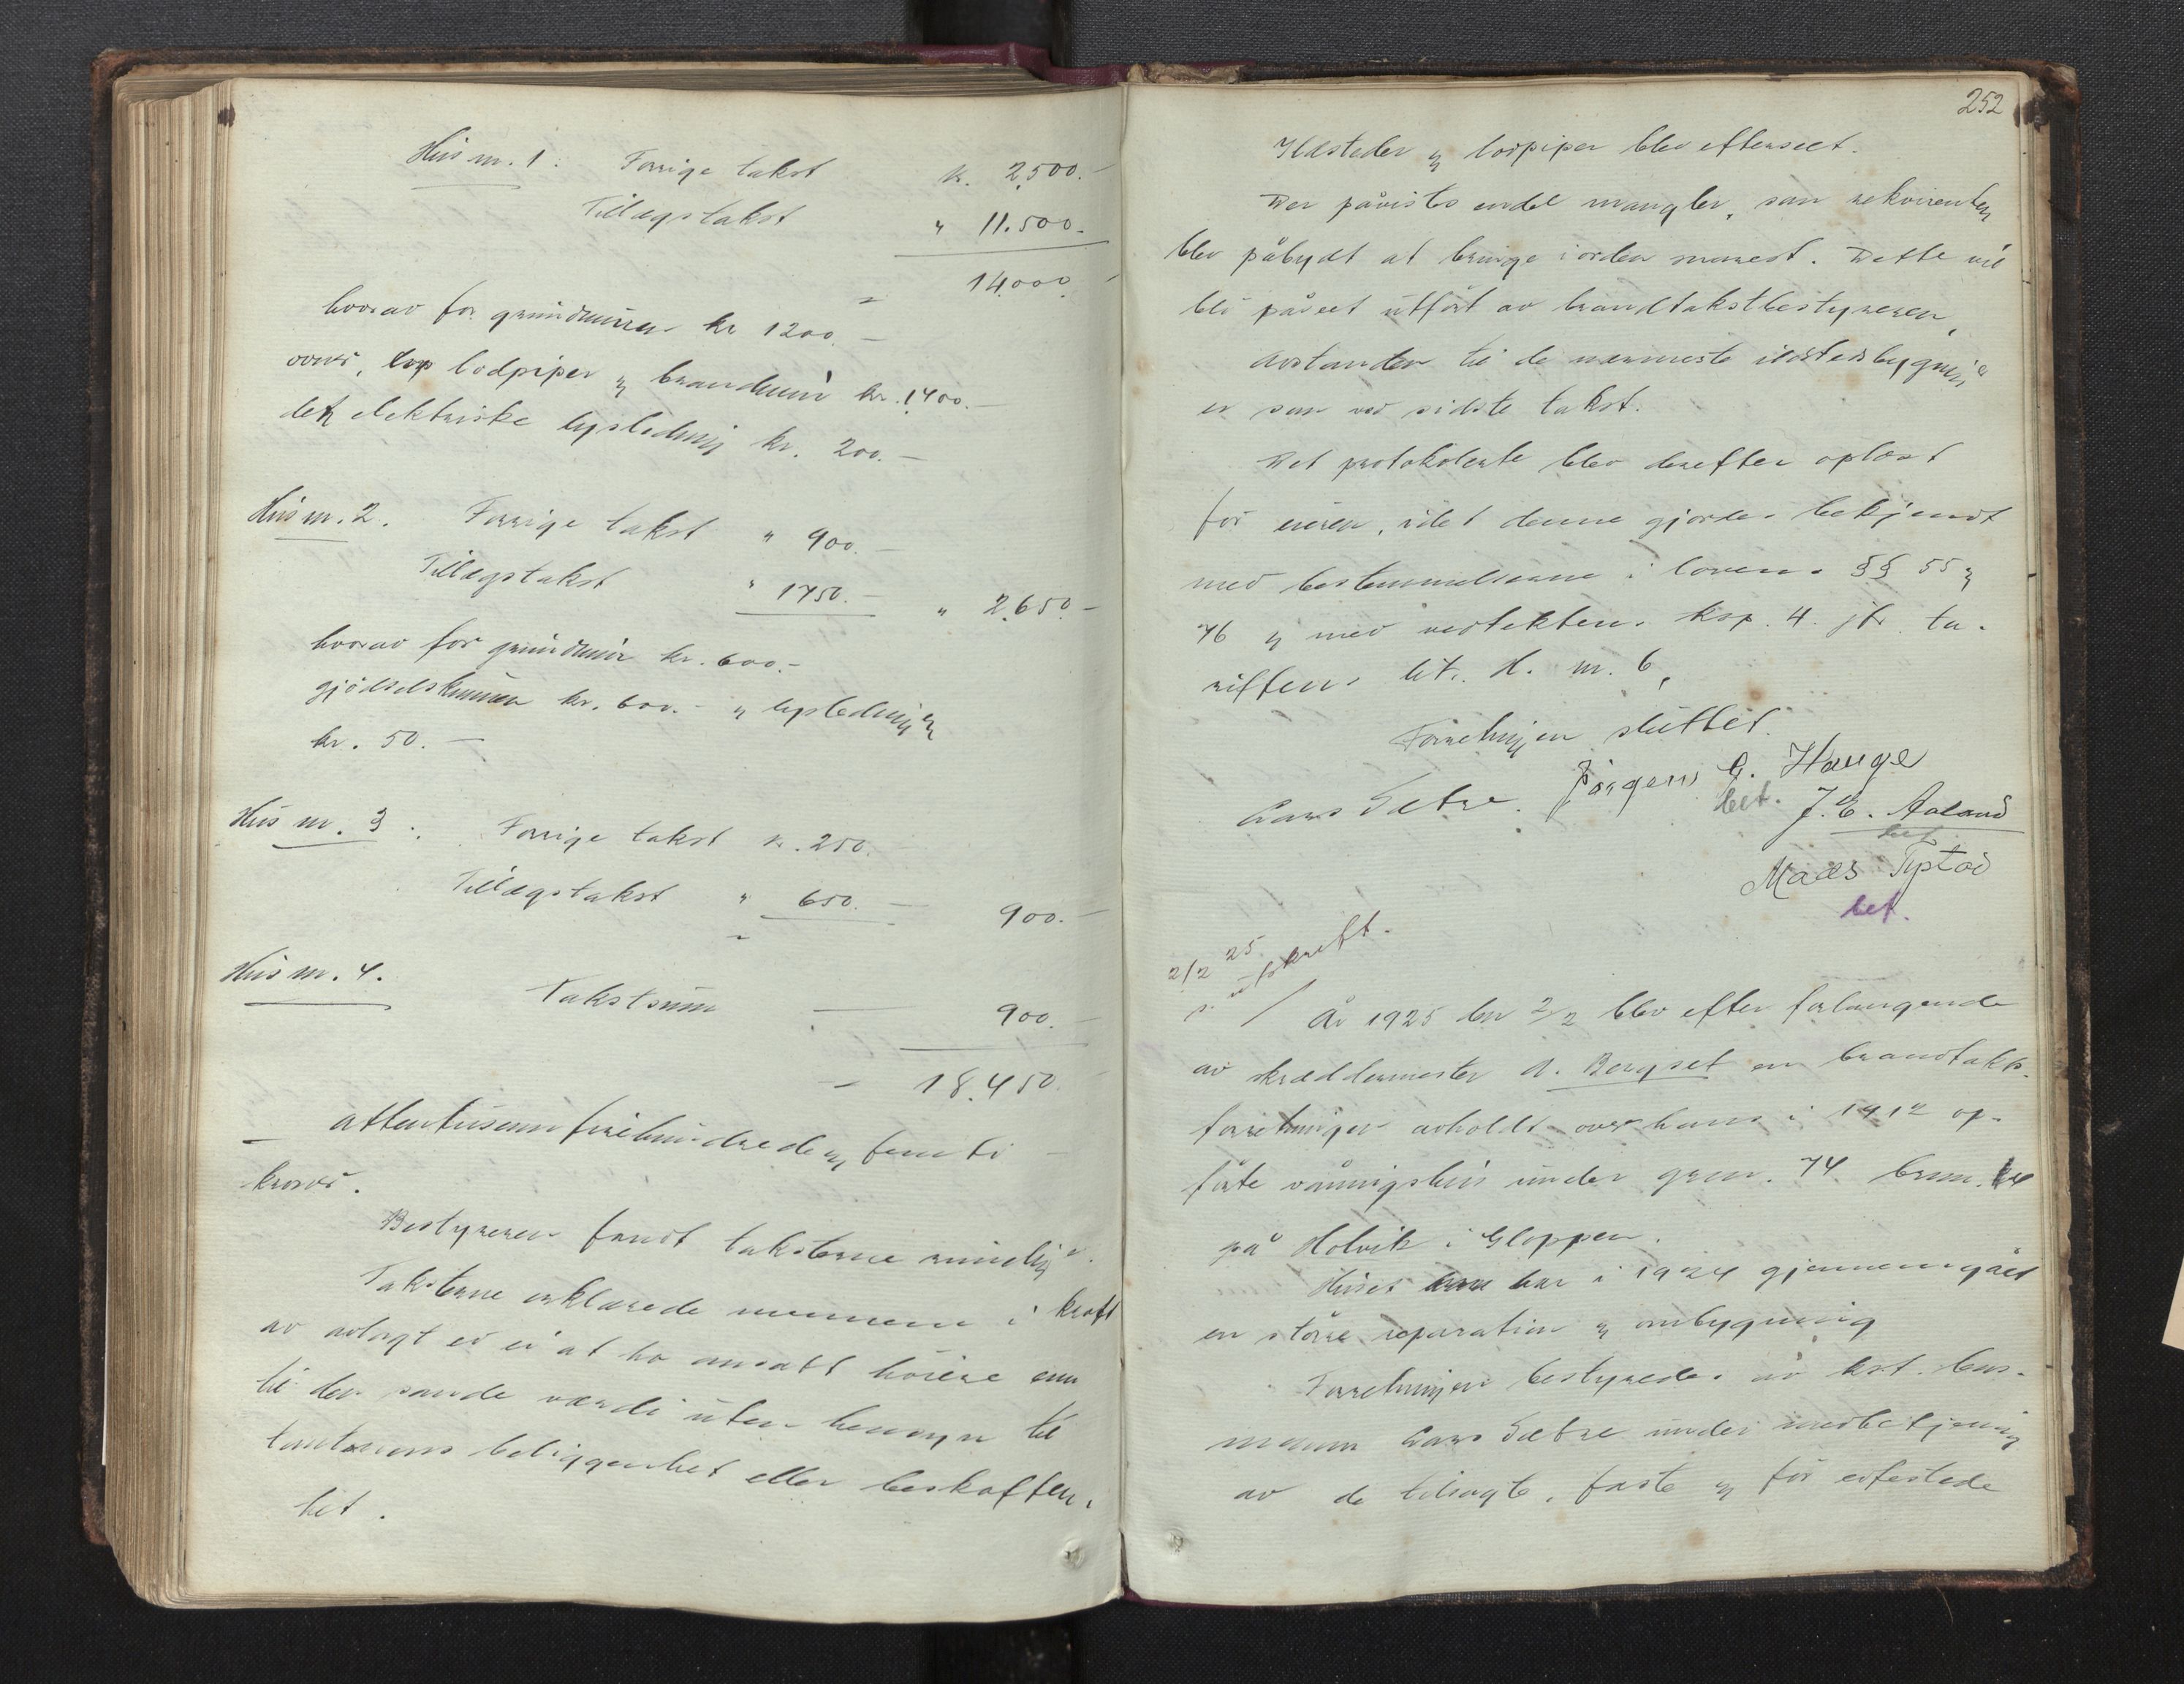 Hus nr. 1. Forrige takst kr. 2,500.-
Tillægstakst " 11.500.-
" 14.000.-
hvorav for grundmuren kr 1200.-
ovner, lodpiper og brandmur kr. 1400.-
den elektriske lysledning kr. 200.-
Hus nr. 2. Forrige takst " 900.-
Tillægstakst " 1750.- " 2,650.-
hvorav for grundmur kr. 600.-
gjødselskummen kr. 600.- og lysledningen
kr. 50.-
Hus nr. 3. Forrige takst kr. 250.-
Tillægstakst " 650.- 900.-
Hus nr. 4. Takstsum - 900.-
- 18.450.-
- attentusenfirehundrede og femti -
kroner.
Bestyreren fandt taksterne rimelig.
Taksterne erklærede mennene i kraft
av avlagt ed ei at ha ansatt høiere enn
til den sande værdi uten hensyn til
tomtenens beliggenhet eller beskaffen-
het.
252
Ildsteder og lodpiper blev efterseet.
Der påvistes endel mangler, som rekvirenten
blev påbydt at bringe i orden snarest. Dette vil
bli påseet utført av brandtakstbestyreren,
Avstanden til de nærmeste ildstedsbygninger
er som ved sidste takst.
Det protokolerte blev derefter oplæst
for eieren, idet denne gjordes bekjendt
med bestemmelserne i lovens §§ 55 og
76 og med vedtektens kap. 4. jfr. ta-
riffens lit. H. nr. 6,
Forretningen sluttet.
Lars Sætre. Jørgens G. Hauge
bet. J. E. Aaland
bet
Mads Tystad
bet.
2/2 25.
utskrift.
År 1925 den 2/2 blev efter forlangende
av skræddermester A. Bergset en brandtakst-
forretninger avholdt over hans i 1912 op-
førte våningshus under grnr. 74 brnr.
på Holvik i Gloppen.
Huset har i 1924 gjennemgået
en større reparation og ombygning
Forretningen bestyredes av kst. lens-
mann Lars Sætre under medbetjening
av de tilsagte, faste og før edfestede